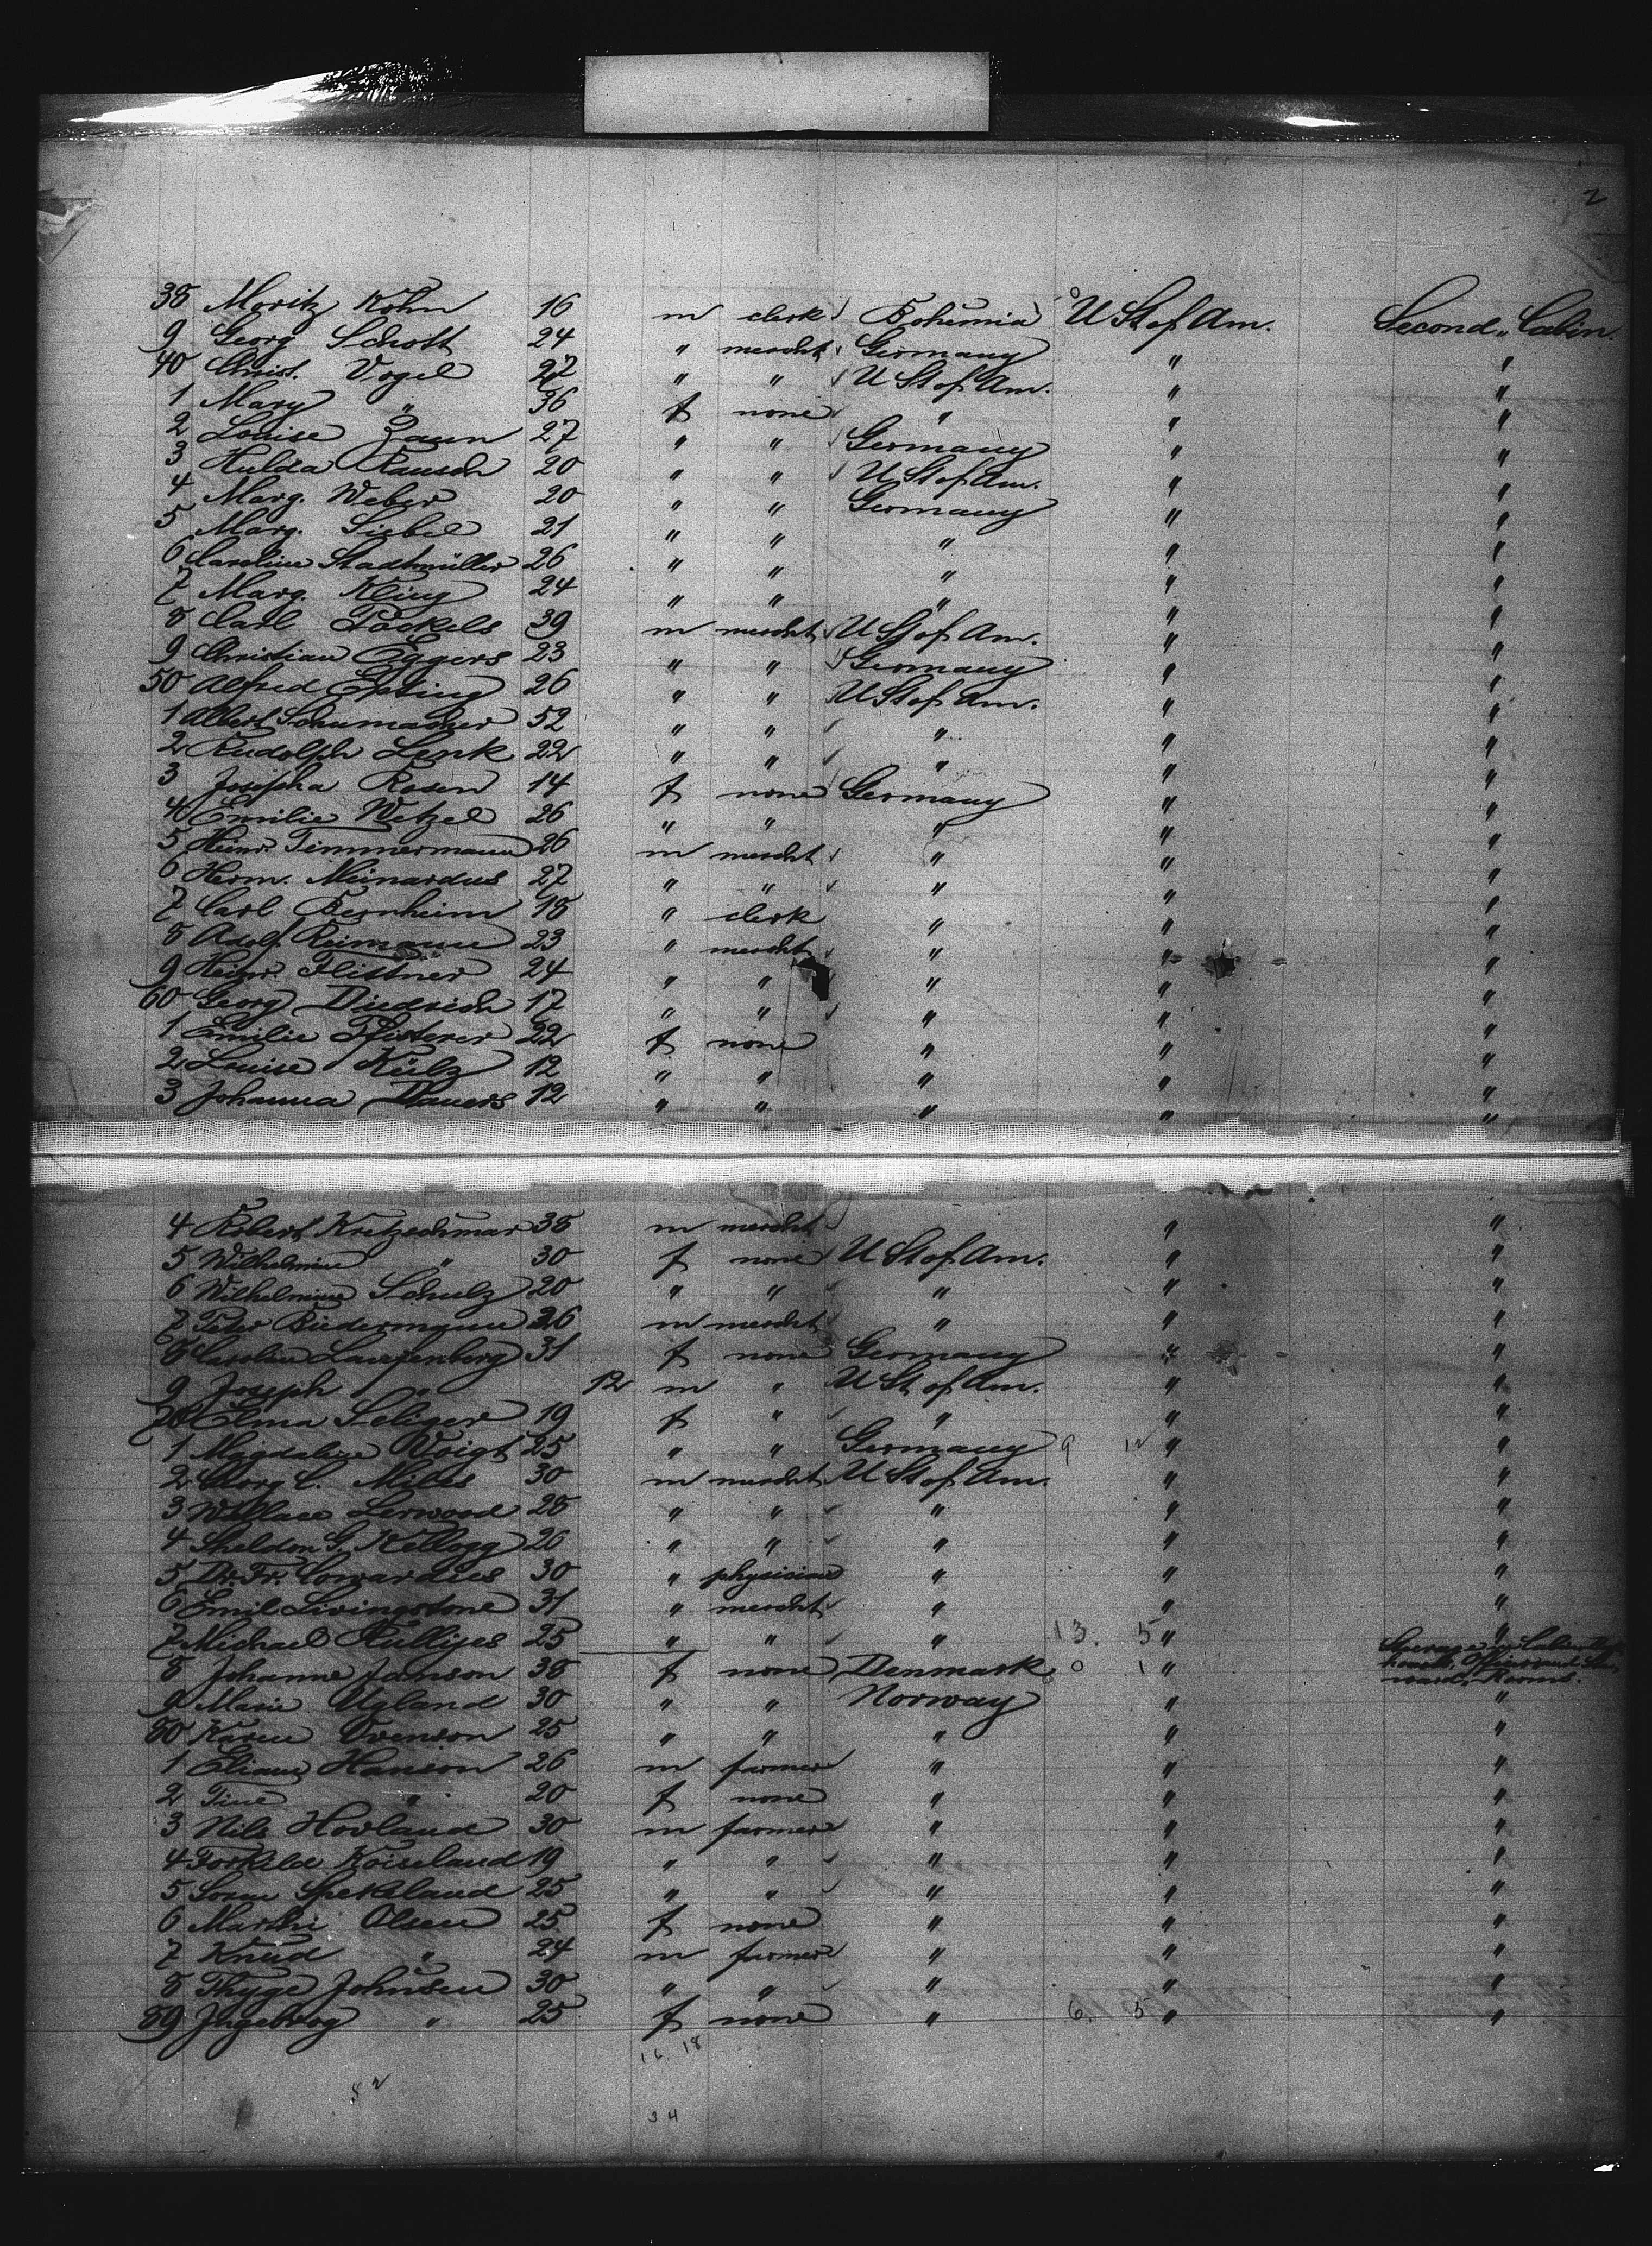 2
38 Moritz Kohn 16 m clerk Bohemia U St of Am. Second Cabin.
9 Georg Schott 24 " mercht Germany " "
40 Christ. Vogel 27 " " U St of Am. " "
1 Mary " 36 f none " " "
2 Louise Zaun 27 " " Germany " "
3 Hulda Rausch 20 " " U St of Am. " "
4 Marg. Weber 20 " " Germany " "
5 Marg. Siebel 21 " " " " "
6 Caroline Stadtmüller 26 " " " " "
7 Marg. Kling 24 " " " " "
8 Carl Pöckels 39 m mercht U St of Am. " "
9 Christian Eggers 23 " " Germany " "
50 Alfred Epting 26 " " U St of Am. " "
1 Albert Schumacher 52 " " " " "
2 Rudolph Lenk 22 " " " " "
3 Josepha Rosen 14 f none Germany " "
4 Emilie Wetzel 26 " " " " "
5 Heinr. Timmermann 26 m mercht " " "
6 Herm. Meinardus 27 " " " " "
7 Carl Bernheim 18 " clerk " " "
8 Adolf Reimann 23 " mercht " " "
9 Heinr. Flistner 24 " " " " "
60 Georg Diedrich 17 " " " " "
1 Emilie Pfisterer 22 f none " " "
2 Louise Külz 12 " " " " "
3 Johanna Dauers 12 " " " " "
4 Robert Kretzschmar 38 m mercht " "
5 Wilhelmine " 30 f none U St of Am. " "
6 Wilhelmine Schulz 20 " " " " "
7 Peter Biedermann 26 m mercht " " "
8 Caroline Laufenberg 31 f none Germany " "
9 Joseph " 12 m " U St of Am. " "
70 Elma Seliger 19 f " " " "
1 Magdaline Voigt 25 " " Germany 9 12 " "
2 Georg C. Miles 30 m mercht U St of Am. " "
3 Wallace Lerwood 28 " " " " "
4 Sheldon G. Kellogg 26 " " " " "
5 Dr. Fr. 30 " physician " " "
6 Emil Livingstone 31 " mercht " " "
7 Michael Rulliges 25 " " " 13. 5 " "
8 Johanne Janson 38 f none Denmark 0 1 "
9 Marie Ugland 30 " " Norway " "
80 Karen Svenson 25 " " " " "
1 Hanson 26 m farmer " " "
2 Tine " 20 f none " " "
3 Nils Hovland 30 m farmer " " "
4 Torkild Koiseland 19 " " " " "
5 Soren Spekeland 25 " " " " "
6 Marthi Olsen 25 f none " " "
7 Knud " 24 m farmer " " "
8 Thyge Johnsen 30 " " " " "
89 Ingeborg " 25 f none " 6. 5 " "
16. 18
82
34